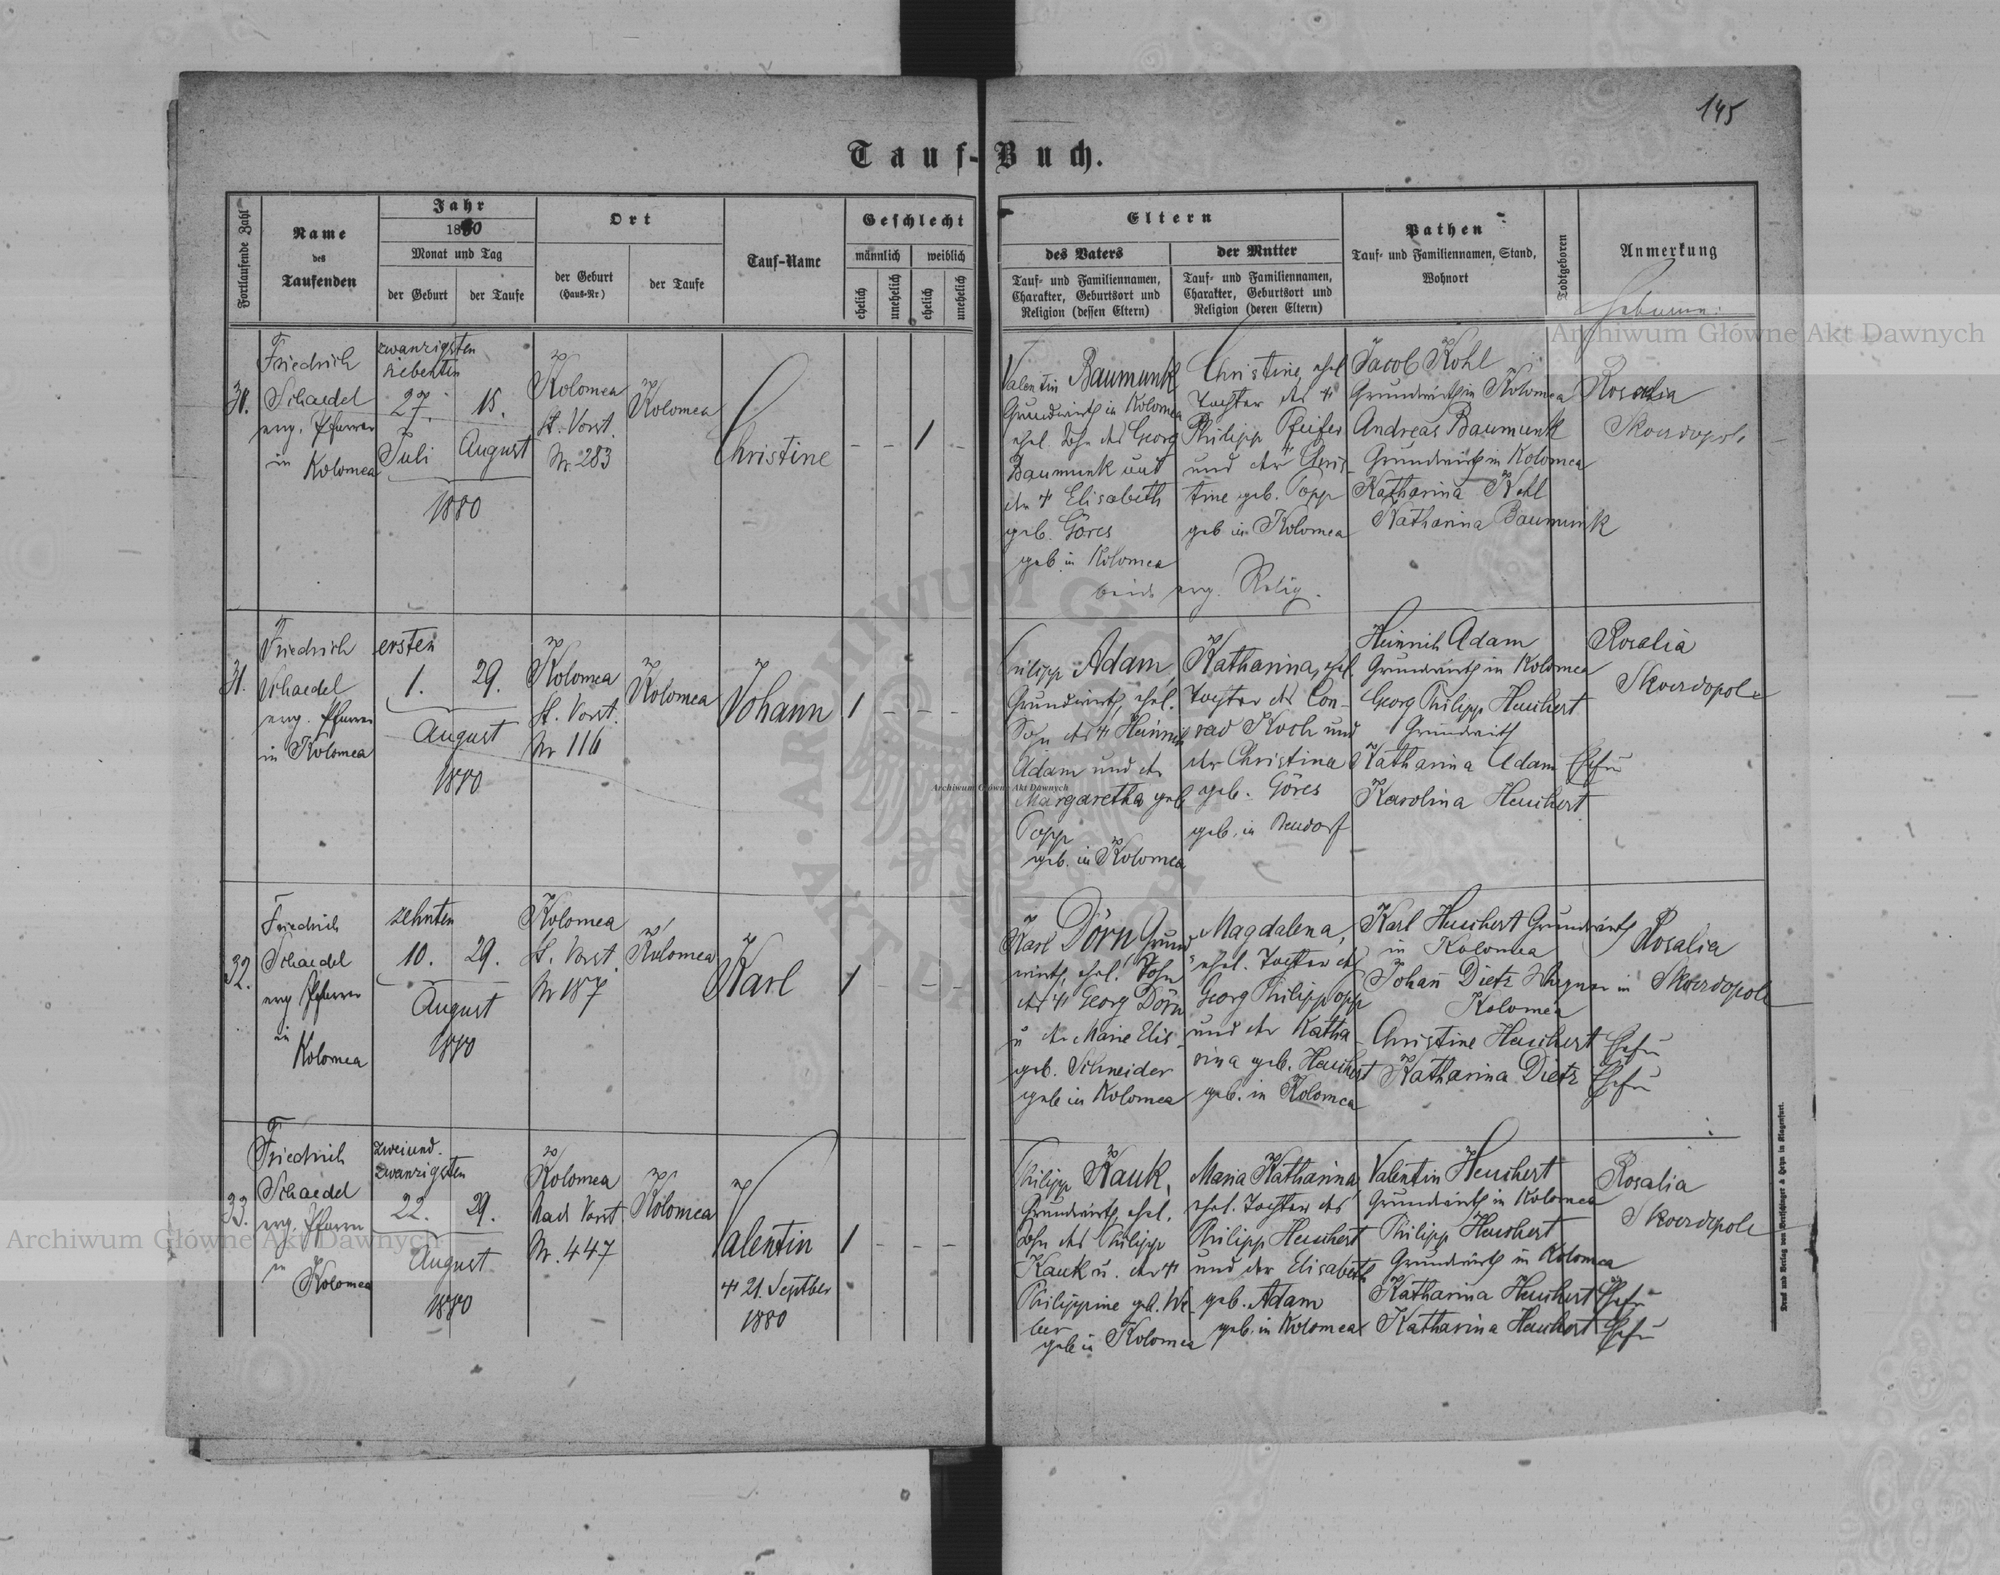 145
Tauf-Buch.
Fortlaufende Zahl
Name
des
Taufenden
Jahr
1880
Monat und Tag
der Geburt
der Taufe
Ort
der Geburt
(Haus-Nr.)
der Taufe
Tauf-Name
Geschlecht
männlich
weiblich
ehelich
unehelich
ehelich
unehelich
Eltern
des Vaters
Tauf- und Familiennamen,
Charakter, Geburtsort und
Religion (dessen Eltern)
der Mutter
Tauf- und Familiennamen,
Charakter, Geburtsort und
Religion (deren Eltern)
Pathen
Tauf- und Familiennamen, Stand,
Wohnort
Todtgeboren
Anmerkung
Hebamme:
30.
Friedrich
Schaedel
evg. Pfarrer
in
Kolomea
zwanzigsten
siebenten
27.
Juli
15.
August
1880
Kolomea
St. Vorst.
Nr. 283
Kolomea
Christine
- - 1 -
Valentin Baumunk
Grundwirth in Kolomea
ehel. Sohn des Georg
Baumunk und
der † Elisabeth
geb. Göres
geb in Kolomea
Christine, ehel
Tochter des †
Philipp Pfeifer
und der † Chris-
tine geb. Popp
geb in Kolomea
beide evg. Relig.
Jacob Kohl
Grundwirth in Kolomea
Andreas Baumunk
Grundwirth in Kolomea
Katharina Kohl
Katharina Baumunk
Rosalia
Skwedopole
31.
Friedrich
Schaedel
evg. Pfarrer
in Kolomea
ersten
1.
29.
August
1880
Kolomea
St. Vorst.
Nr 116
Kolomea
Johann
1 - - -
Philipp Adam,
Grundwirth, ehel.
Sohn des † Heinrich
Adam und der
Margaretha geb
Popp
geb. in Kolomea
Katharina, ehel.
Tochter des Con-
rad Koch und
der Christina
geb. Göres
geb. in Neudorf
Heinrich Adam
Grundwirth in Kolomea
Georg Philipp Heuchert
Grundwirth
Katharina Adam Ehefr
Karolina Heuchert
Rosalia
Skwedopole
32.
Friedrich
Schaedel
evg Pfarrer
in
Kolomea
zehnten
10.
29.
August
1880
Kolomea
St. Vorst.
Nr 187
Kolomea
Karl
1 - - -
Karl Dörn, Grund-
wirth, ehel. Sohn
des † Georg Dörn
u der Marie Elis-
geb. Schneider
geb in Kolomea
Magdalena,
ehel. Tochter des
Georg Philipp Popp
und der Katha-
rina geb. Heuchert
geb. in Kolomea
Karl Heuchert Grundwirth
in Kolomea
Johann Dietz Wagner in
Kolomea
Christine Heuchert Ehefr
Katharina Dietz Ehefr
Rosalia
Skwedopole
33.
Friedrich
Schaedel
evg. Pfarrer
in
Kolomea
zweiund-
zwanzigsten
22.
29.
August
1880
Kolomea
Nad. Vorst.
Nr. 447
Kolomea
Valentin
† 21. Septber
1880
1 - - -
Philipp Kauk,
Grundwirth, ehel.
Sohn des Philipp
Kauk u. der †
Philippine geb. We-
ber
geb in Kolomea
Maria Katharina,
ehel. Tochter des
Philipp Heuchert
und der Elisabeth
geb. Adam
geb. in Kolomea
Valentin Heuchert
Grundwirth in Kolomea
Philipp Heuchert
Grundwirth in Kolomea
Katharina Heuchert Ehefr
Katharina Heuchert Ehefr
Rosalia
Skwedopole
Druck und Verlag von Bertschinger & Heyn in Klagenfurt.
Archiwum Główne Akt Dawnych
Archiwum Główne Akt Dawnych
Archiwum Główne Akt Dawnych